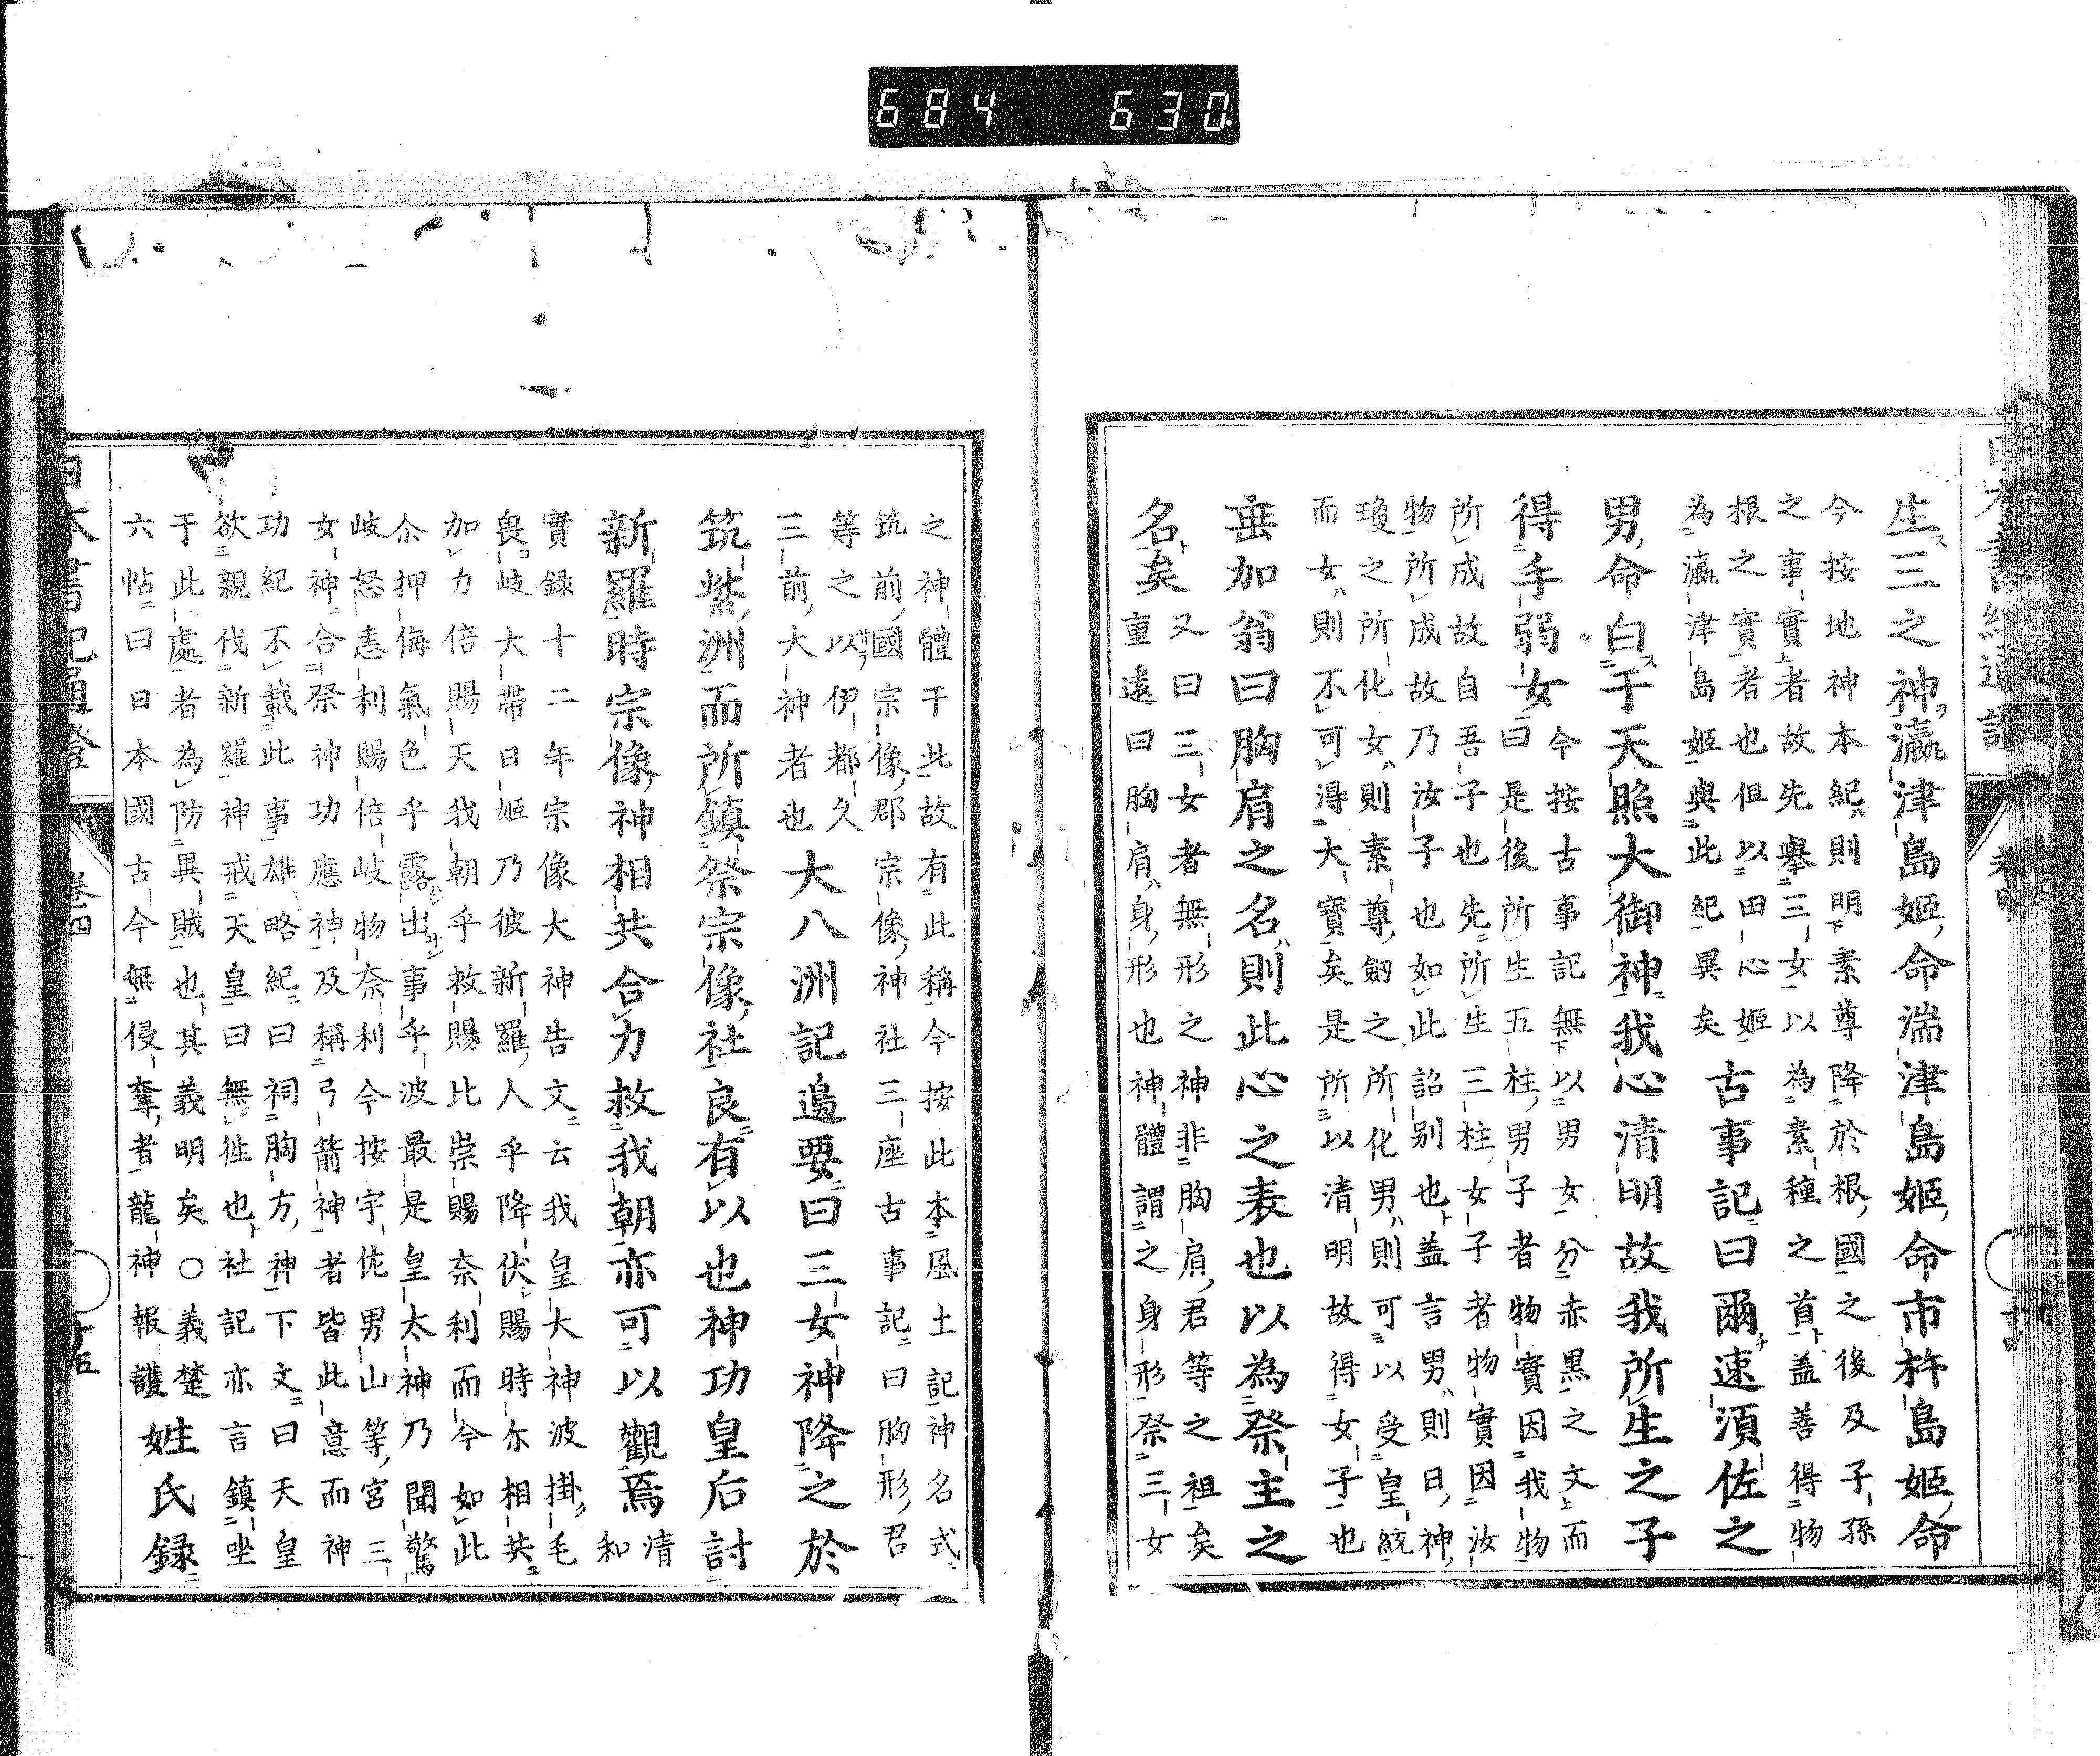 684 630
生三之神瀛津島姫命湍津島姫命市杵島姫命
今按地神本紀則明素尊降於根國之後及子孫
之事實者故先擧三女以為素種之首盖善得物
根之實者也但以田心姫
為瀛津島姫與此紀異矣
古事記曰爾速須佐之
男命白于天照大御神我心清明故我所生之子
得手弱女
今按古事記無以男女分赤黒之文而
曰是後所生五柱男子者物實因我物
所成故自吾子也先所生三柱女子者物實因汝
物所成故乃汝子也如此詔別也盖言男則日神
瓊之所化女則素尊劔之所化男則可以受皇統
而女則不可得大寳矣是所以清明故得女子也
垂加翁曰胸肩之名則此心之表也以為祭主之
名矣
又曰三女者無形之神非胸肩君等之祖矣
重遠曰胸肩身形也神體謂之身形祭三女
之神體于此故有此稱今按此本風土記神名式
筑前國宗像郡宗像神社三座古事記曰胸形君
等之以伊都久
三前大神者也
大八洲記邉要曰三女神降之於
筑紫洲而所鎮祭宗像社良有以也神功皇后討
新羅時宗像神相共合力救我朝亦可以觀焉
清
和
實録十二年宗像大神告文云我皇大神波掛毛
畏岐大帯日姫乃彼新羅人乎降伏賜時尓相共
加力倍賜天我朝乎救賜比崇賜奈利而今如此
尓押侮氣色乎露出事乎波最是皇太神乃聞驚
岐怒恚利賜倍岐物奈利今按宇佐男山等宮三
女神合祭神功應神及稱弓箭神者皆此意而神
功紀不載此事雄略紀曰祠胸方神下文曰天皇
欲親伐新羅神戒天皇曰無徃也社記亦言鎮坐
于此處者為防異賊也其義明矣○義楚
六帖曰日本國古今無侵奪者龍神報護
姓氏録
日本書紀通證
卷四
十五